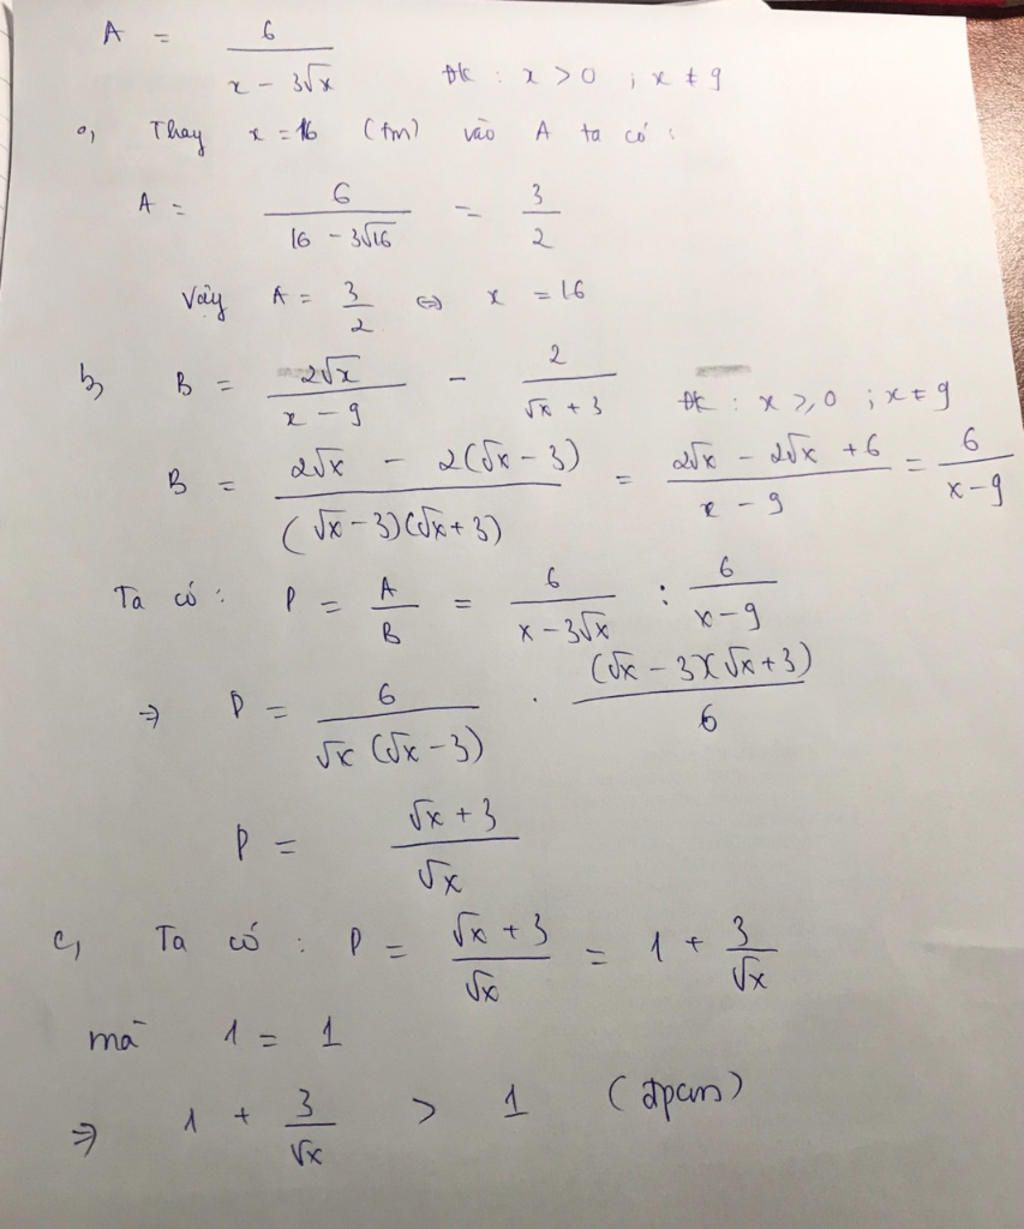 A = 6/(x - 3√x) đk : x > 0 ; x ≠ 9
a, Thay x = 16 (tm) vào A ta có :
A = 6/(16 - 3√16) = 3/2
Vậy A = 3/2 ⇔ x = 16
b, B = 2√x/(x - 9) - 2/(√x + 3) ĐK : x ≥ 0 ; x ≠ 9
B = (2√x - 2(√x - 3))/((√x - 3)(√x + 3)) = (2√x - 2√x + 6)/(x - 9) = 6/(x - 9)
Ta có : P = A/B = 6/(x - 3√x) : 6/(x - 9)
⇒ P = 6/(√x (√x - 3)) . ((√x - 3)(√x + 3))/6
P = (√x + 3)/√x
c, Ta có : P = (√x + 3)/√x = 1 + 3/√x
mà 1 = 1
⇒ 1 + 3/√x > 1 (đpcm)